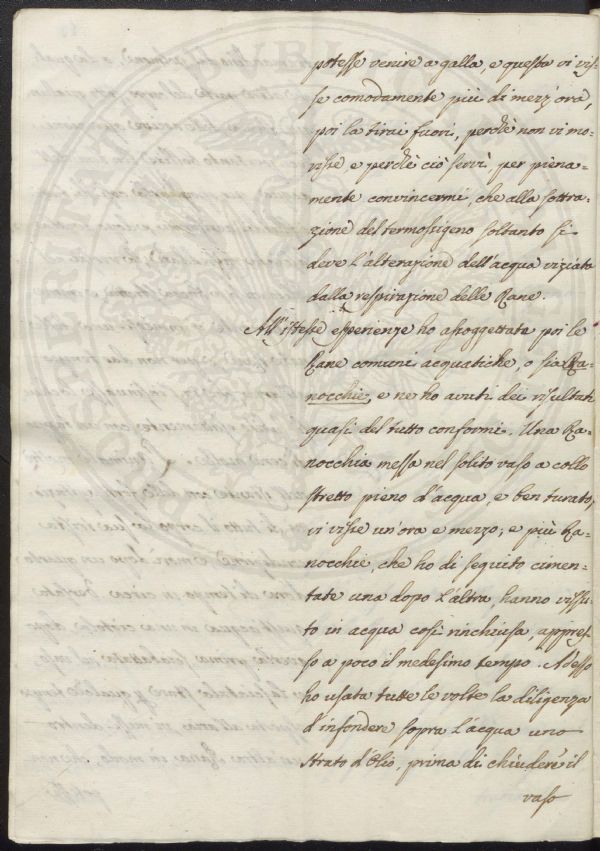 potesse venire a galla, e questa vi vis=
se comodamente più di mezz'ora,
poi la tirai fuori, perchè non vi mo=
risse, e perchè ciò servì per piena=
mente convincermi, che alla sottra=
zione del termossigeno soltanto si
deve l'alterazione dell'acqua viziata
dalla respirazione delle Rane.
All'istesse esperienze ho assoggettata poi le
Rane comuni acquatiche, o sia Ra=
nocchie, e ne ho avuti dei risultati
quasi del tutto conformi. Una Ra=
nocchia messa nel solito vaso a collo
stretto pieno d'acqua, e ben turato,
vi visse un'ora e mezzo; e più Ra=
nocchie, che ho di seguito cimen=
tate una dopo l'altra, hanno vissu=
to in acqua così rinchiusa, appres=
so a poco il medesimo tempo. Adesso
ho usata tutte le volte la diligenza
d'infondere sopra l'acqua uno
strato d'Olio, prima di chiudere il
vaso